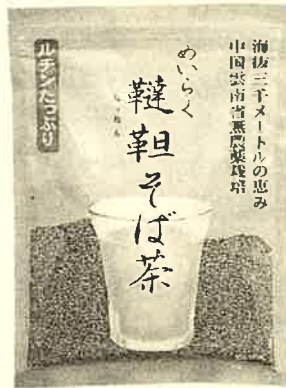 海抜三千メートルの恵み
中国雲南省無農薬栽培
めいらく
韃靼そば茶
ルチンたっぷり